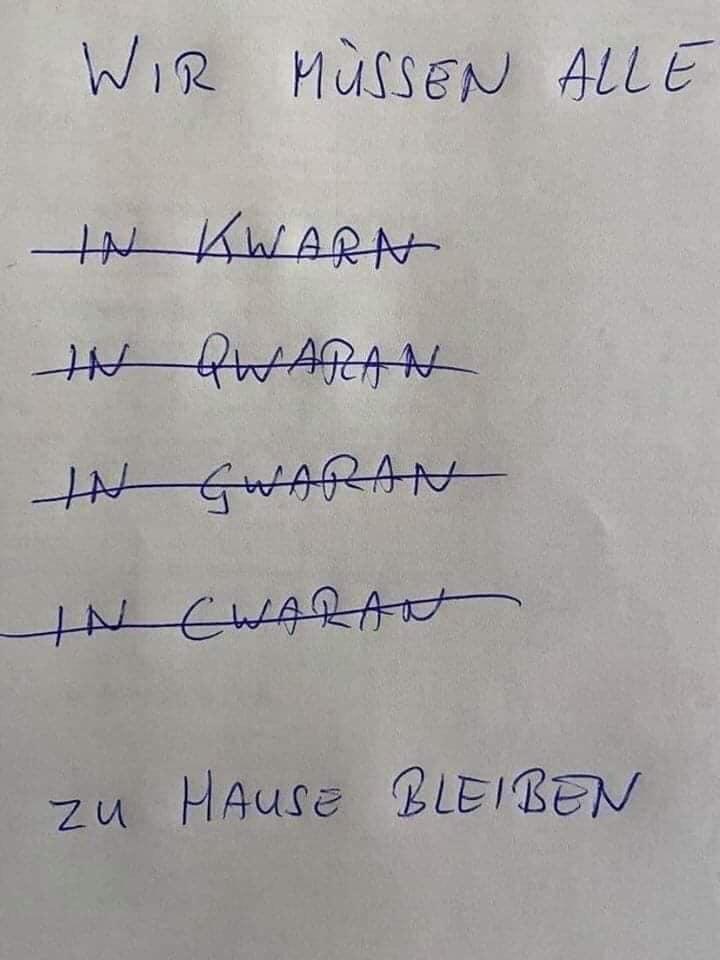 WIR MÜSSEN ALLE
IN KWARN
IN QWARAN
IN GWARAN
IN CWARAN
ZU HAUSE BLEIBEN